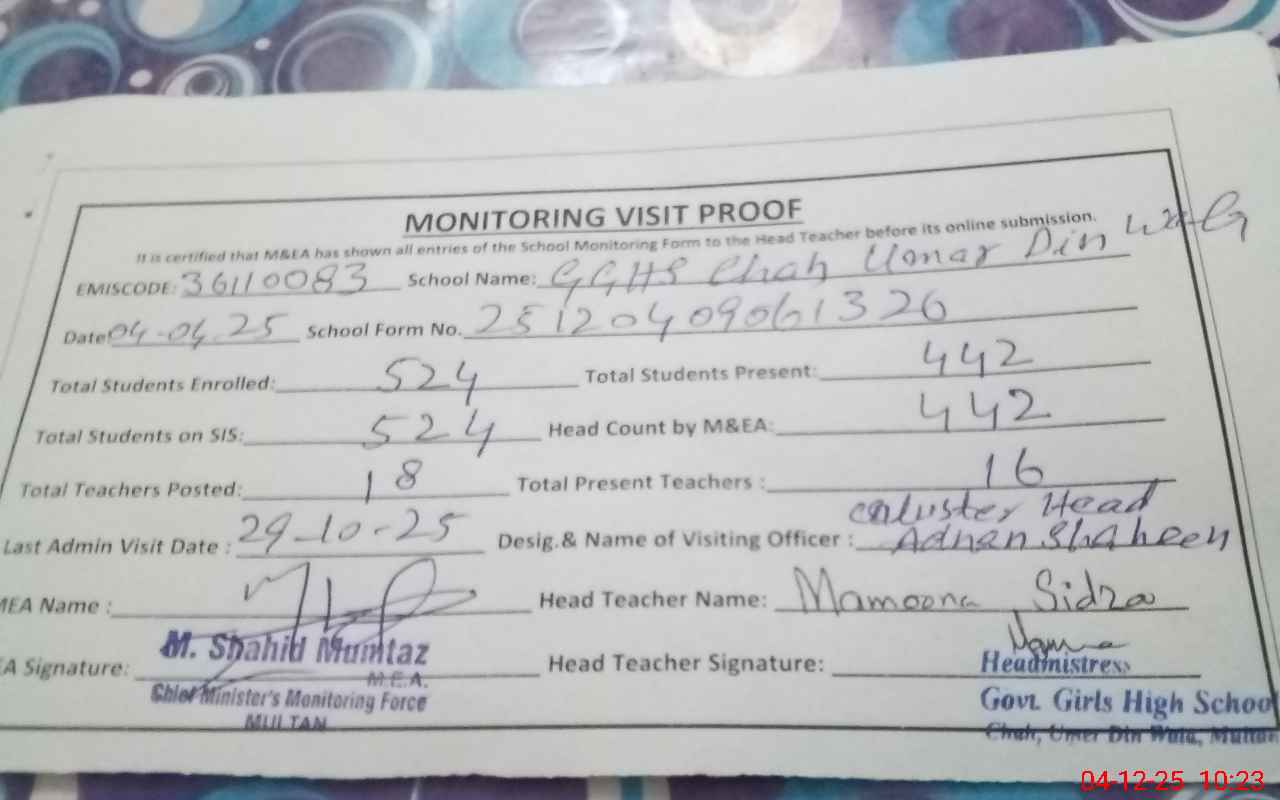 MONITORING VISIT PROOF
It is certified that M&EA has shown all entries of the School Monitoring Form to the Head Teacher before its online submission.
EMISCODE: 36110083 School Name: GGHS Chah Umar Din
Date 04-04-25 School Form No. 25120409061326
Total Students Enrolled: 524 Total Students Present: 442
Total Students on SIS: 524 Head Count by M&EA: 442
Total Teachers Posted: 18 Total Present Teachers : 16
Last Admin Visit Date : 29-10-25 Desig.& Name of Visiting Officer : Head Adnan Shaheen
MEA Name : Head Teacher Name: Mamoona Sidra
EA Signature: Head Teacher Signature:
M. Shahid Mumtaz
M.E.A.
Chief Minister's Monitoring Force
MULTAN
Headmistress
Govt. Girls High Schoo
Chah, Umer Din Wala, Multan
04-12-25 10:23